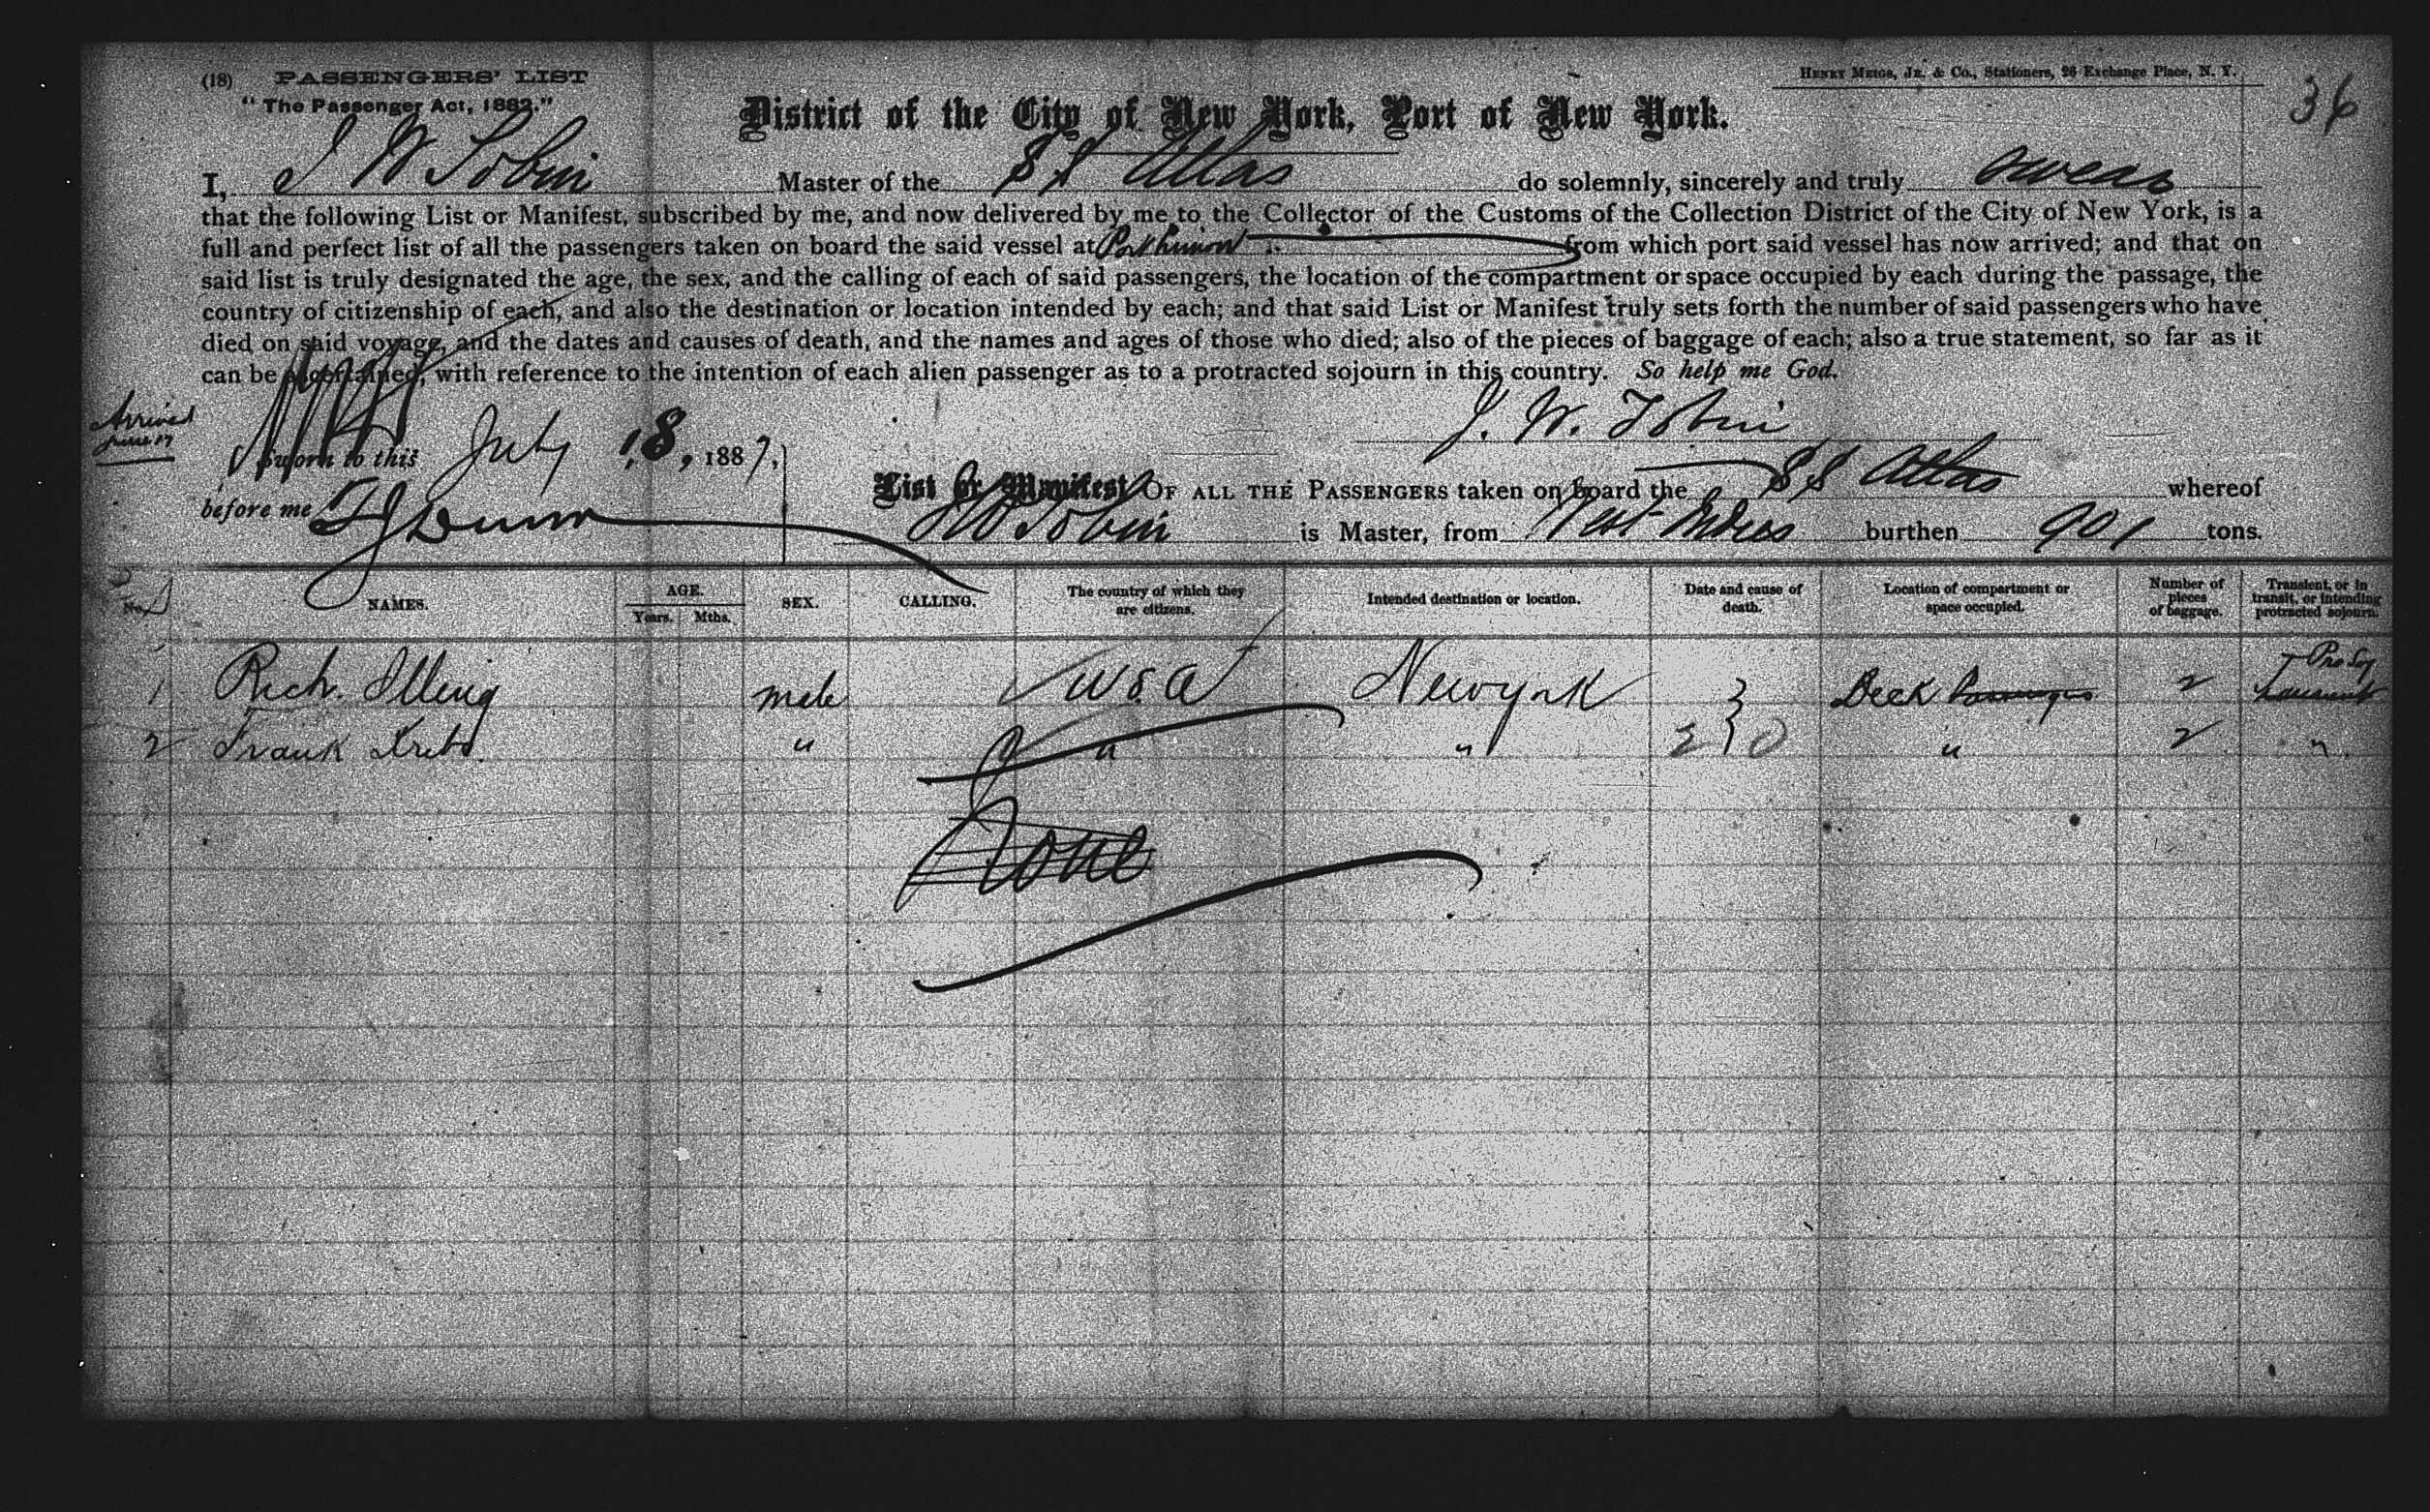 (18) PASSENGERS' LIST
"The Passenger Act, 1882."
HENRY MEIGS, JR. & CO., Stationers, 26 Exchange Place, N. Y.
36
District of the City of New York, Port of New York.
I, J W Tobin Master of the SS Atlas do solemnly, sincerely and truly swear
that the following List or Manifest, subscribed by me, and now delivered by me to the Collector of the Customs of the Collection District of the City of New York, is a
full and perfect list of all the passengers taken on board the said vessel at Port Limon from which port said vessel has now arrived; and that on
said list is truly designated the age, the sex, and the calling of each of said passengers, the location of the compartment or space occupied by each during the passage, the
country of citizenship of each, and also the destination or location intended by each; and that said List or Manifest truly sets forth the number of said passengers who have
died on said voyage, and the dates and causes of death, and the names and ages of those who died; also of the pieces of baggage of each; also a true statement, so far as it
can be ascertained, with reference to the intention of each alien passenger as to a protracted sojourn in this country. So help me God.
Arrived
J. W. Tobin
Sworn to this July 18, 1887,
before me
List or Manifest OF ALL THE PASSENGERS taken on board the SS Atlas whereof
J W Tobin is Master, from West Indies burthen 901 tons.
No. NAMES. AGE. Years. Mths. SEX. CALLING. The country of which they are citizens. Intended destination or location. Date and cause of death. Location of compartment or space occupied. Number of pieces of baggage. Transient, or in transit, or intending protracted sojourn.
1 Rich. Illing male USA New york Deck Passengers 2 Pro Soj
2 Frank Krebs. " " " 2 0 " 2 "
None